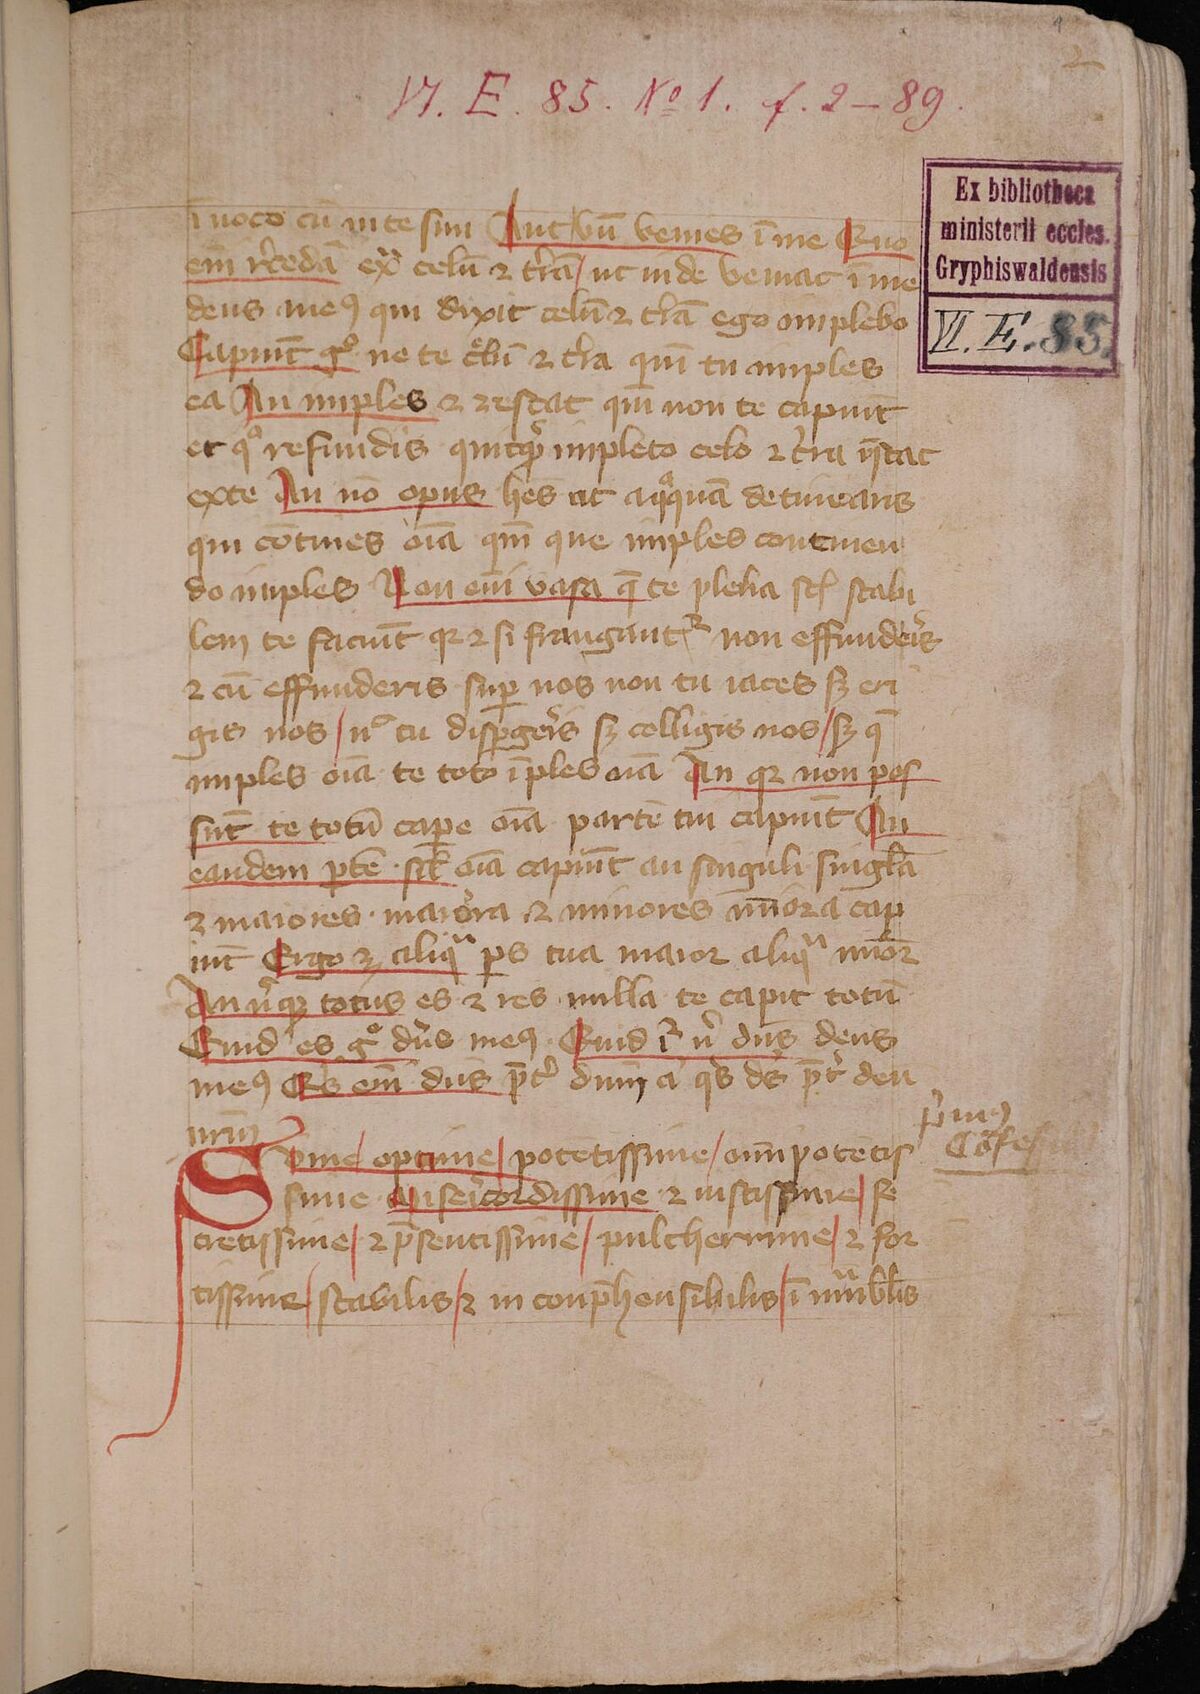 VI. E. 85. No 1. f. 2–89.
4
2
Ex bibliotheca
ministerii eccles.
Gryphiswaldensis
VI. E. 85.
īuoco cū in te sim Aut vn̄ venies ī me Quo
em̄ rͥcedā ex̄ͣ celū ⁊ tr̄ā / ut inde veniat ī me
deus meꝰ qui dixit celū ⁊ tr̄ā ego impleбо
Capiūt gͦ ne te celū ⁊ tr̄a qm̄ tu imples
ea An imples ⁊ restat qm̄ non te capiūt
et qͦ refundis quitqͥd impleto celo ⁊ tr̄a r̄stat
ex te An nō opus hēs ut a qͦquā detinearis
qui cōtines oīa qm̄ que imples continen
do imples Non em̄ vasa q̄ te plena st̄ stabi
lem te faciūt qꝛ ⁊ si frangantᷣ non effunderis
⁊ cū effunderis suꝑ nos non tu iaces sꝫ eri
gis nos / nͨ tu disꝑgeris sꝫ colligis nos / sꝫ q̄
imples oīa te toto īples oīa An qꝛ non pos
sūt te totū caꝑe oīa partē tui capiūt An
eandem ꝑtē sil̄ oīa capiūt an singuli singl̄a
⁊ maiores maiora ⁊ minores minora capi
iūt Ergo ē aliqͣ ꝑs tua maior aliqͣ minor
An vbiqꝫ totus es ⁊ res nulla te capit totū
Quid es gͦ dn̄s meꝰ Quid rͦ nͥ dn̄s deus
meꝰ Qͥs em̄ dn̄s p̄tͥ dnm̄ aͭ qͥs dˢ p̄tͥ deū
nrm̄
pͥmꝰ
Cōfes
Sūme / optime / potētissime / omīpotētis
sime miseͥcordissime ⁊ iustissime / se
cretissime / ⁊ p̄sentissime / pulcherrime / ⁊ for
tissime / stabilis / ⁊ in conp̄hensibilis / ī mͣubl̄is